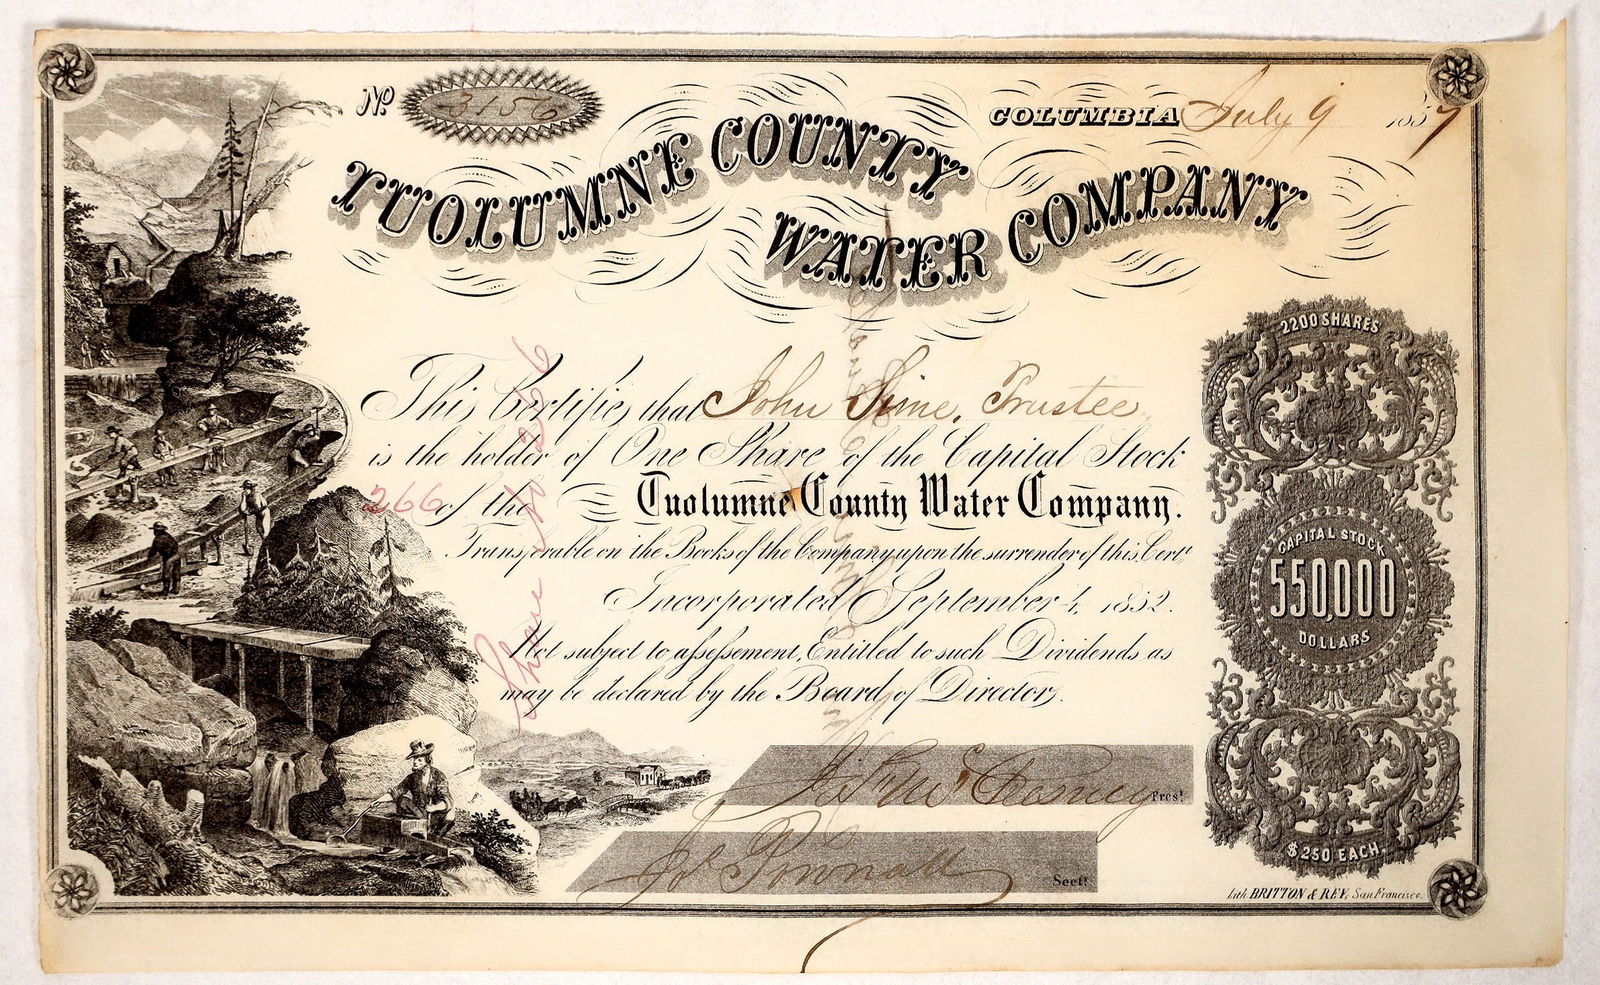 No 3156
COLUMBIA July 9 1857
TUOLUMNE COUNTY
WATER COMPANY
2200 SHARES
This Certifies that John Sime, Trustee
is the holder of One Share of the Capital Stock
266 of the Tuolumne County Water Company.
Transferable on the Books of the Company upon the surrender of this Cert.
Incorporated September 4, 1852.
Not subject to assessment, Entitled to such Dividends as
may be declared by the Board of Directors.
Share No 266
CAPITAL STOCK
550,000
DOLLARS
Prest
Jos Pownall
Sect!
$250 EACH.
Lith. BRITTON & REY, San Francisco.